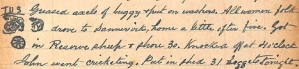 TUS Greased axels of buggy & put on washers. All women folk
drove to Dannevirke, home a little after five. Got
in Reserve sheep & shore 30. Knocked off at 4 o'clock
John went cricketing. Put in shed 31. Foggy Tonight.